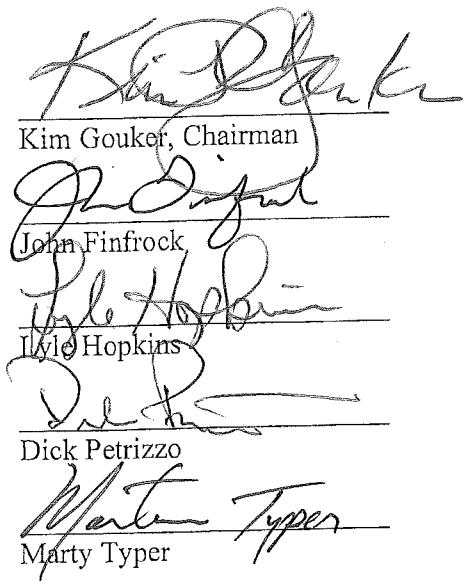 Kim D. Gouker
Kim Gouker, Chairman
John Finfrock
John Finfrock
Lyle Hopkins
Lyle Hopkins
Dick
Dick Petrizzo
Martin Typer
Marty Typer